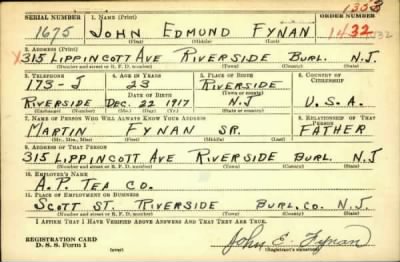 SERIAL NUMBER 1. NAME (Print) ORDER NUMBER
1675 JOHN EDMUND FYNAN 1432
(First) (Middle) (Last)
2. ADDRESS (Print)
315 LIPPINCOTT AVE RIVERSIDE BURL. N.J.
(Number and street or R. F. D. number) (Town) (County) (State)
3. TELEPHONE 4. AGE IN YEARS 5. PLACE OF BIRTH 6. COUNTRY OF CITIZENSHIP
173-J 23 RIVERSIDE
DATE OF BIRTH (Town or county)
RIVERSIDE DEC. 22 1917 N.J U.S.A.
(Exchange) (Number) (Mo.) (Day) (Yr.) (State or country)
7. NAME OF PERSON WHO WILL ALWAYS KNOW YOUR ADDRESS 8. RELATIONSHIP OF THAT PERSON
MARTIN FYNAN SR. FATHER
(Mr., Mrs., Miss) (First) (Middle) (Last)
9. ADDRESS OF THAT PERSON
315 LIPPINCOTT AVE RIVERSIDE BURL. N.J
(Number and street or R. F. D. number) (Town) (County) (State)
10. EMPLOYER'S NAME
A.P. TEA CO.
11. PLACE OF EMPLOYMENT OR BUSINESS
SCOTT ST. RIVERSIDE BURL.CO. N.J.
(Number and street or R. F. D. number) (Town) (County) (State)
I AFFIRM THAT I HAVE VERIFIED ABOVE ANSWERS AND THAT THEY ARE TRUE.
REGISTRATION CARD
D. S. S. Form 1 (over) John E. Fynan
(Registrant's signature)